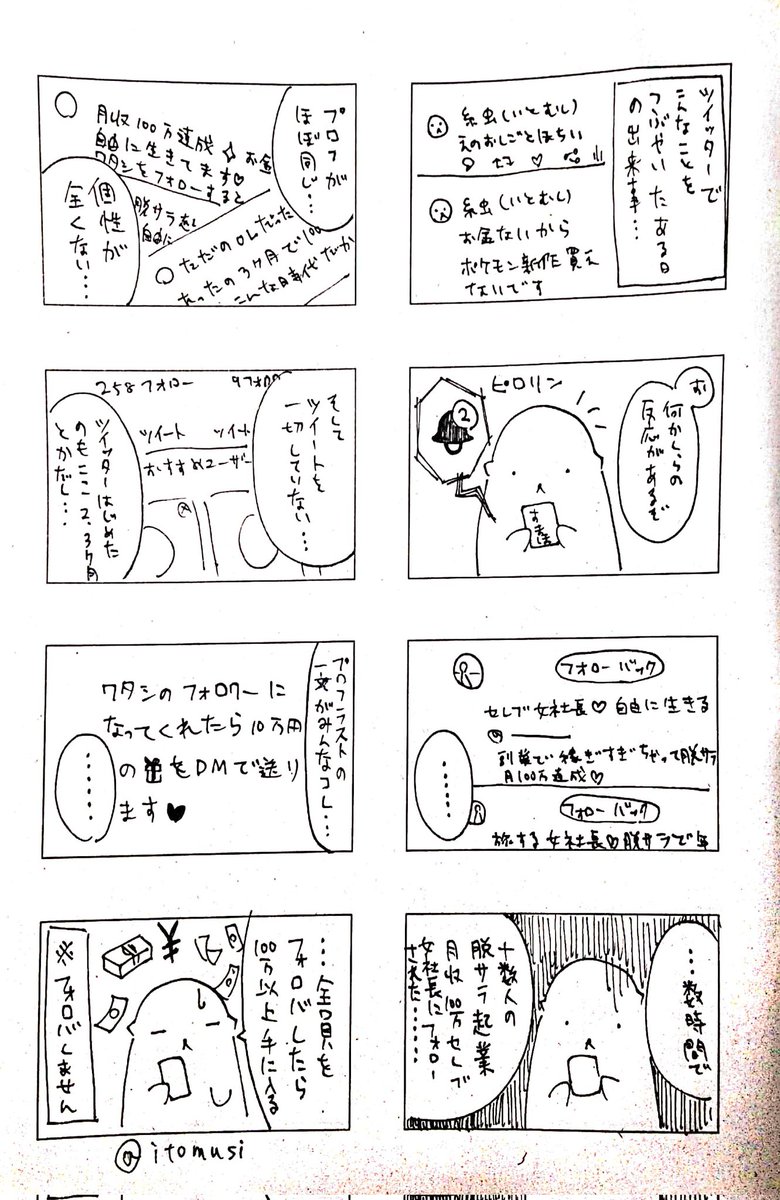 ツイッターで
こんなことを
つぶやいたある日
の出来事…
糸虫(いとむし)
えのおしごとほちい
糸虫(いとむし)
お金ないから
ポケモン新作買え
ないです
お
何かしらの
反応があるぞ
ピロリン
2
すまほ
フォローバック
セレブ女社長♡自由に生きる
副業で稼ぎすぎちゃって脱サラ
月100万達成♡
フォローバック
旅する女社長♡脱サラで年
……
…数時間で
十数人の
脱サラ起業
月収100万セレブ
女社長にフォロー
された……
プロフが
ほぼ同じ…
月収100万達成
お金
自由に生きてます♡
ワタシをフォローすると
脱サラをし
自由に
ただのOLだった
たったの3ヶ月で100
こんな時代だか
個性が
全くない…
そして
ツイートを
一切していない…
258フォロー
9フォロ
ツイート
ツイート
おすすめユーザー
ツイッターはじめた
のもここ2、3ヶ月
とかだし…
プロフラストの
一文がみんなコレ…
ワタシのフォロワーに
なってくれたら10万円
のをDMで送り
ます♥
……
…全員を
フォロバしたら
100万以上手に入る
¥
※フォロバしません
@itomusi